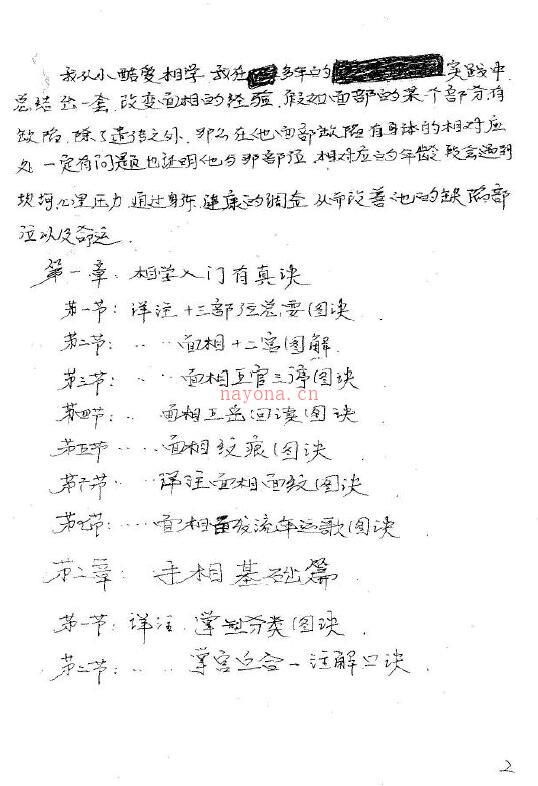 我从小酷爱相学 我在多年的实践中
总结出一套 改变面相的经验 假如面部的某个部分有
缺陷 除了遗传之外 那么在他面部缺陷有身体的相对应
处 一定有问题也证明他与那部位 相对应的年龄段会遇到
坎坷 心里压力 通过身体 健康的调查 从而改善他的缺陷部
位以及命运.
第一章. 相学入门有真诀
第一节: 详注十三部位总要(图诀
第二节: .... 面相十二宫(图解
第三节: .. 面相五官三停(图诀
nayona.cn
第四节: .. 面相五岳四渎(图诀
第五节.... 面相纹痕(图诀
第六节.... 详注面相面纹(图诀
第七节:.... 面相流年运歌(图诀
第二章: 手相基础篇
第一节: 详注. 掌型分类(图诀.
第二节: .... 掌宫合一注解口诀.
2